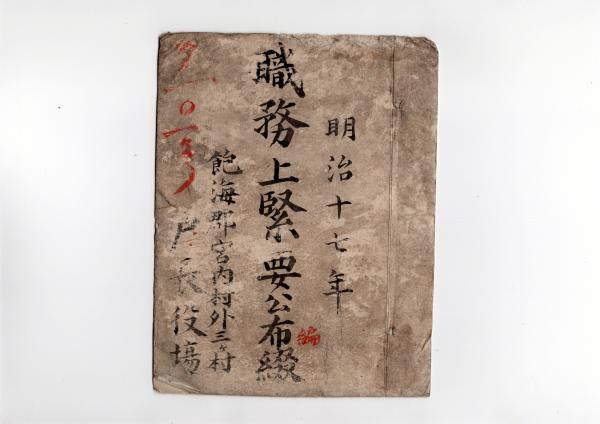 明治十七年
職務上緊要公布綴
編
飽海郡宮内村外三ヶ村
戸長役場